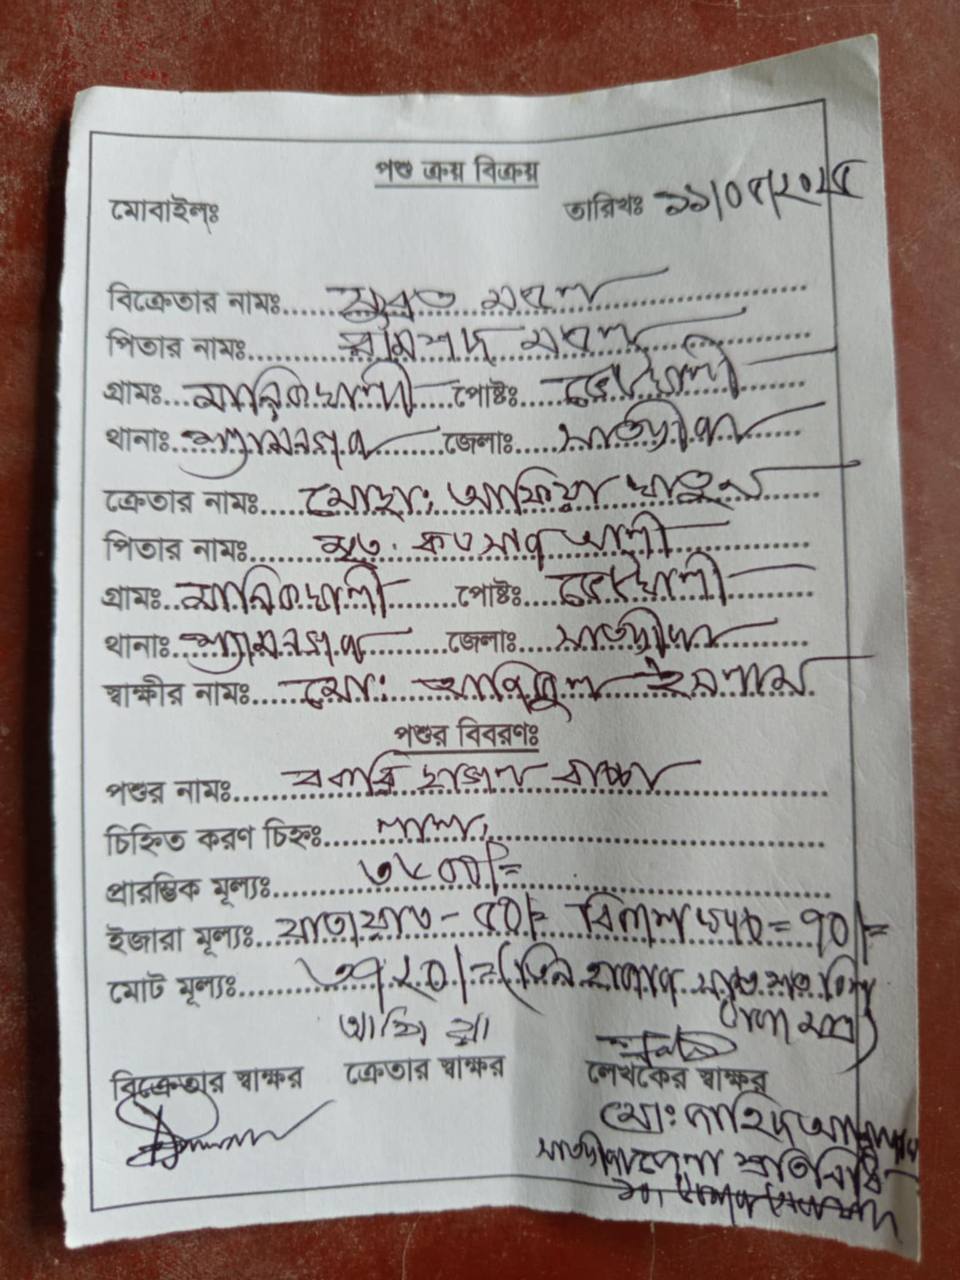 পশু ক্রয় বিক্রয়
মোবাইলঃ তারিখঃ ১১/০৫/২০২৫
বিক্রেতার নামঃ সুব্রত মন্ডল
পিতার নামঃ মন্ডল
গ্রামঃ মানিকখালী পোষ্টঃ
থানাঃ শ্যামনগর জেলাঃ সাতক্ষীরা
ক্রেতার নামঃ মোছাঃ আফিয়া খাতুন
পিতার নামঃ মৃত. আলী
গ্রামঃ মানিকখালী পোষ্টঃ
থানাঃ শ্যামনগর জেলাঃ সাতক্ষীরা
স্বাক্ষীর নামঃ মো: ইসলাম
পশুর বিবরণঃ
পশুর নামঃ ছাগল বাচ্চা
চিহ্নিত করণ চিহ্নঃ লাল,
প্রারম্ভিক মূল্যঃ ৩৬০০/=
ইজারা মূল্যঃ যাতায়াত - ৫০/= = ৭০/=
মোট মূল্যঃ ৩৭২০/= (তিন হাজার সাত শত বিশ
টাকা মাত্র)
আফিয়া
বিক্রেতার স্বাক্ষর ক্রেতার স্বাক্ষর লেখকের স্বাক্ষর
মো:
সাতক্ষীরা জেলা প্রতিনিধি